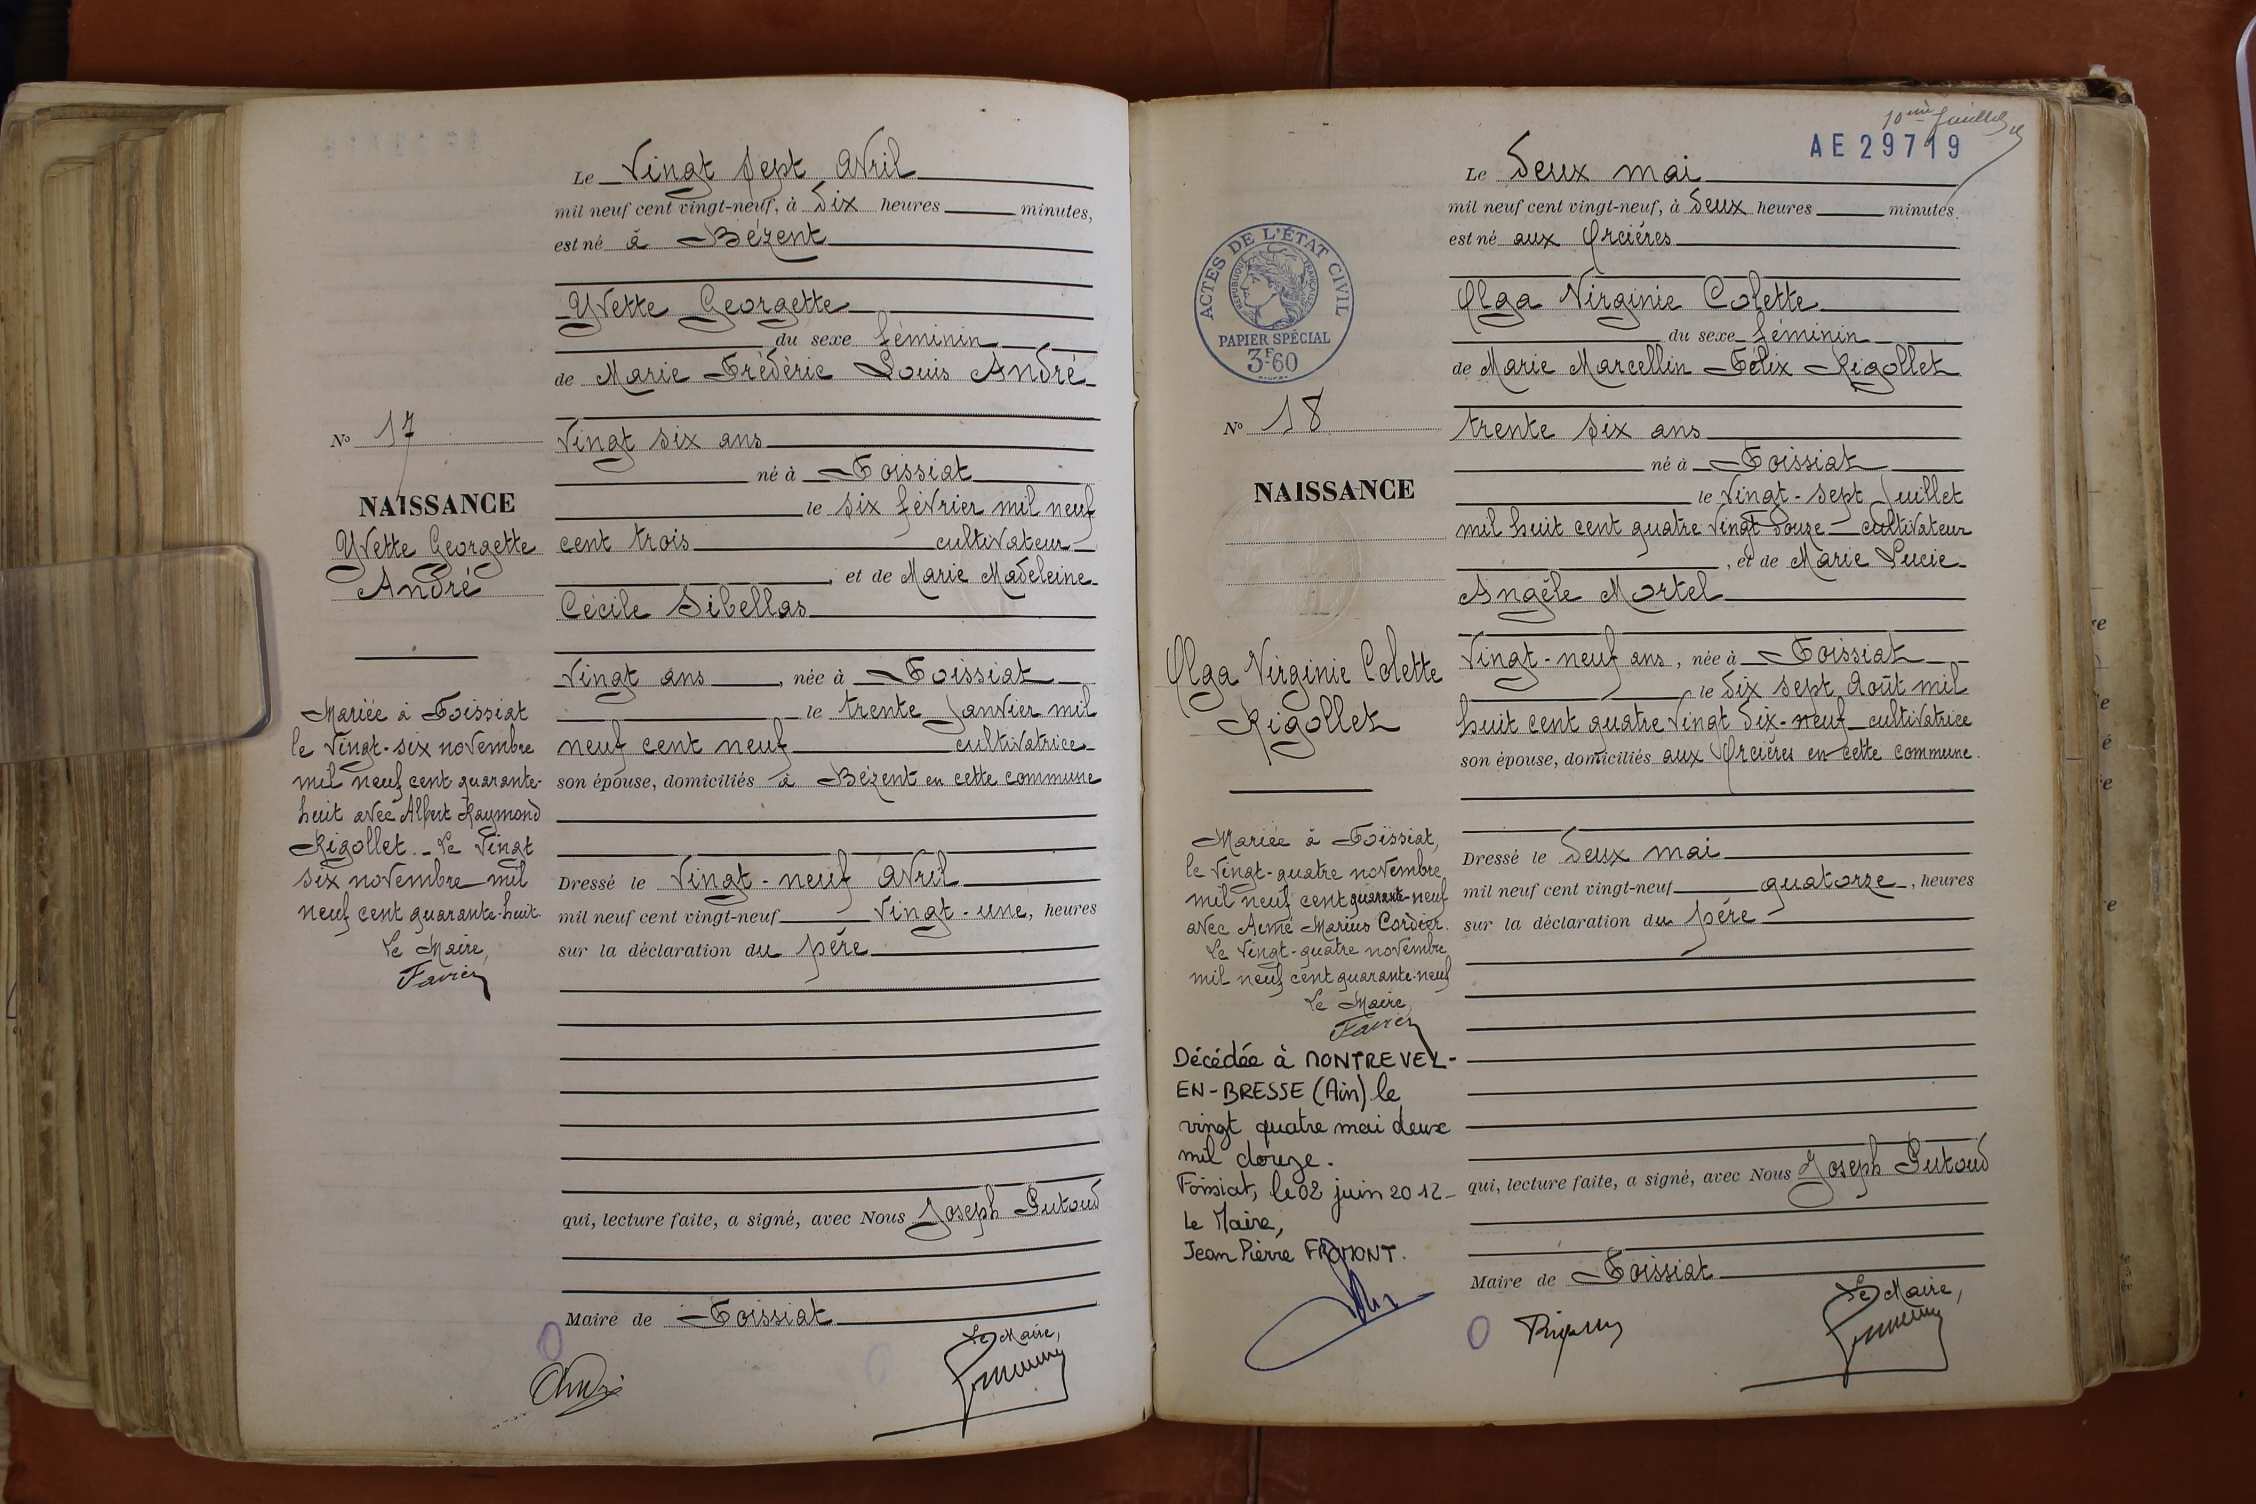 Le Vingt sept Avril
mil neuf cent vingt-neuf, à dix heures minutes,
est né à Bézent
Yvette Georgette
du sexe féminin
de Marie Frédéric Louis André
No 17
vingt six ans
né à Foissiat
NAISSANCE
le six février mil neuf
Yvette Georgette
André
cent trois cultivateur
, et de Marie Madeleine
Cécile Sibellas
vingt ans , née à Foissiat
le trente Janvier mil
neuf cent neuf cultivatrice
son épouse, domiciliés à Bézent en cette commune
Mariée à Foissiat
le vingt-six novembre
mil neuf cent quarante-
huit avec Albert Raymond
Rigollet _ Le vingt
six novembre mil
neuf cent quarante-huit.
Le Maire,
Favier
Dressé le vingt-neuf Avril
mil neuf cent vingt-neuf vingt-une, heures
sur la déclaration du père
qui, lecture faite, a signé, avec Nous Joseph Putoud
Maire de Foissiat
Le Maire,
André
10ème feuillet
AE 29719
Le deux mai
mil neuf cent vingt-neuf, à deux heures minutes.
est né aux Orcières
ACTES DE L'ÉTAT CIVIL
RÉPUBLIQUE FRANÇAISE
PAPIER SPÉCIAL
3F60
Olga Virginie Colette
du sexe féminin
de Marie Marcellin Félix Rigollet
No 18
trente six ans
né à Foissiat
NAISSANCE
le vingt-sept Juillet
mil huit cent quatre vingt douze cultivateur
, et de Marie Lucie
Angèle Mortel
Olga Virginie Colette
Rigollet
vingt-neuf ans , née à Foissiat
le dix sept Août mil
huit cent quatre vingt dix-neuf cultivatrice
son épouse, domiciliés aux Orcières en cette commune.
Mariée à Foissiat,
le vingt-quatre novembre
mil neuf cent quarante-neuf
avec Aimé Marius Cordier.
Le vingt-quatre novembre
mil neuf cent quarante-neuf
Le Maire,
Favier
Décédée à MONTREVEL-
EN-BRESSE (Ain) le
vingt quatre mai deux
mil douze.
Foissiat, le 02 juin 2012_
Le Maire,
Jean Pierre FROMONT.
Dressé le deux mai
mil neuf cent vingt-neuf quatorze , heures
sur la déclaration du père
qui, lecture faite, a signé, avec Nous Joseph Putoud
Maire de Foissiat
Le Maire,